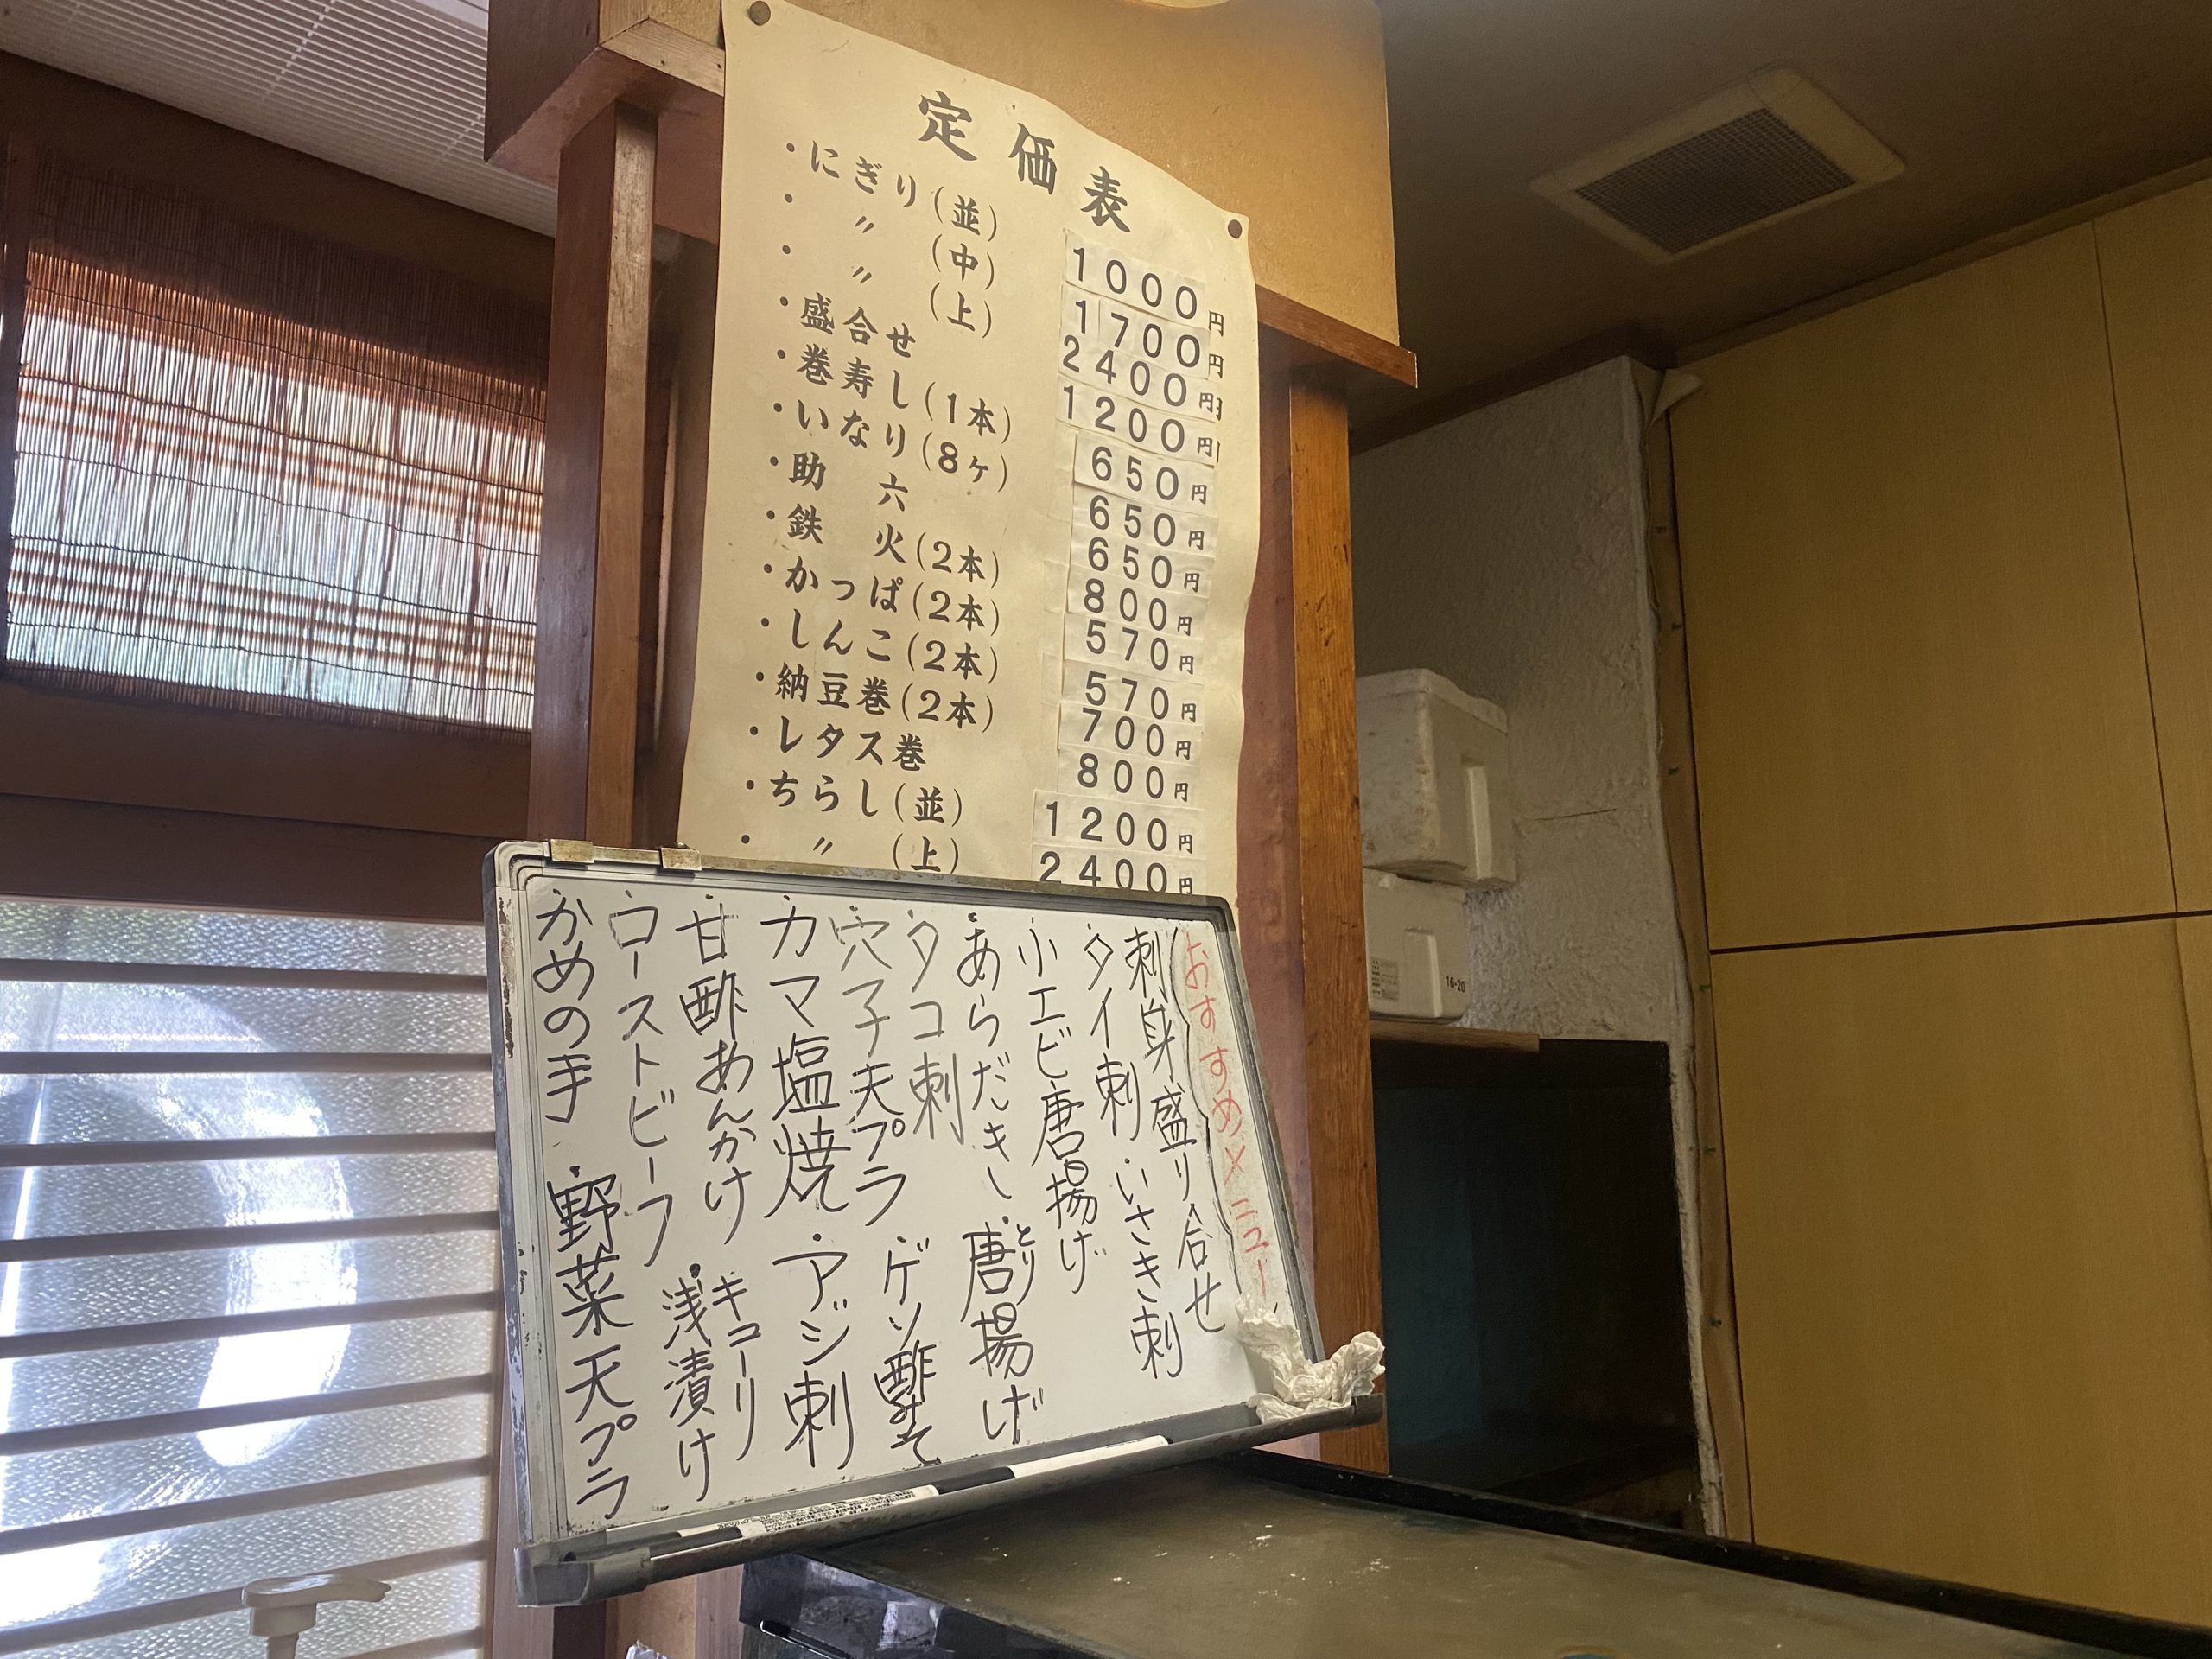 定価表
・にぎり(並) 1000円
・〃(中) 1700円
・〃(上) 2400円
・盛合せ 1200円
・巻寿し(1本) 650円
・いなり(8ヶ) 650円
・助六 650円
・鉄火(2本) 800円
・かっぱ(2本) 570円
・しんこ(2本) 570円
・納豆巻(2本) 700円
・レタス巻 800円
・ちらし(並) 1200円
・〃(上) 2400円
おすすめメニュー
刺身盛り合せ
・タイ刺・いさき刺
・小エビ唐揚げ
・あらだきし・とり唐揚げ
・タコ刺・ゲソ酢みそ
・穴子天プラ
・カマ塩焼・アジ刺
・甘酢あんかけ・キューリ浅漬け
・ローストビーフ
・かめの手・野菜天プラ
16-20